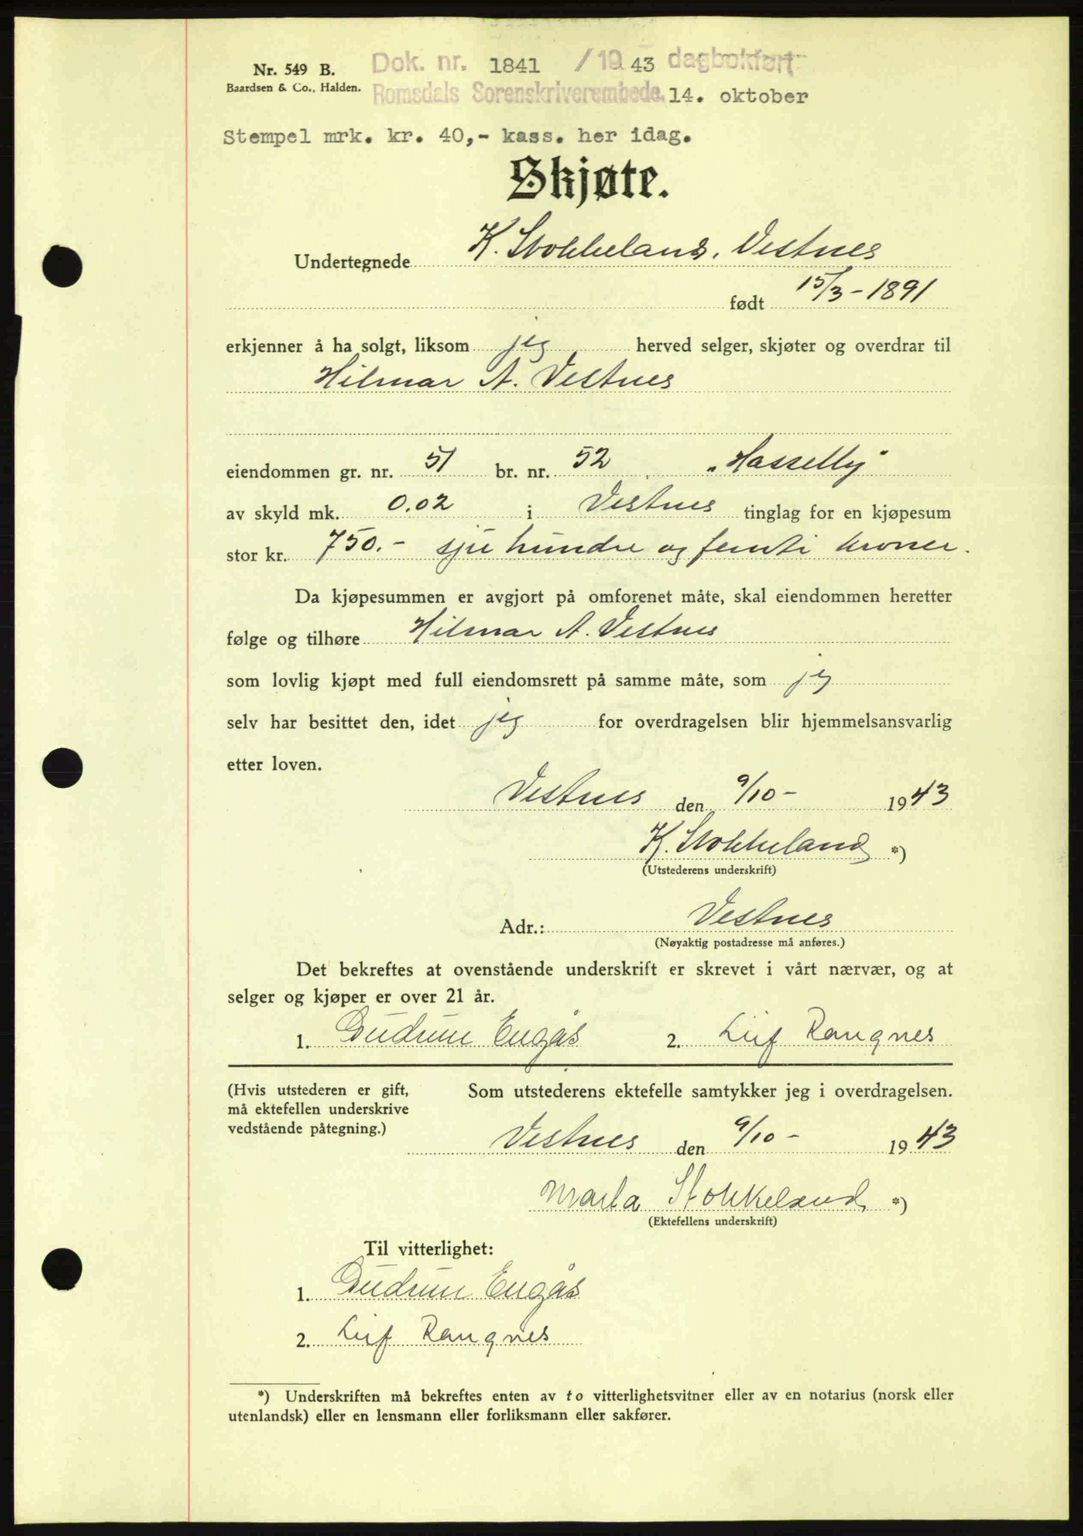 Nr. 549 B.
Baardsen & Co., Halden.
Dok. nr. 1841 /19 43 dagbokført
Romsdals Sorenskriverembede. 14. oktober
Stempel mrk. kr. 40,- kass. her idag.
Skjøte.
Undertegnede K. Stokkeland, Vestnes
født 15/3-1891
erkjenner å ha solgt, liksom jeg herved selger, skjøter og overdrar til
Hilmar A. Vestnes
eiendommen gr. nr. 51 br. nr. 52 „Hasselly"
av skyld mk. 0.02 i Vestnes tinglag for en kjøpesum
stor kr. 750.- sju hundre og femti kroner.
Da kjøpesummen er avgjort på omforenet måte, skal eiendommen heretter
følge og tilhøre Hilmar A. Vestnes
som lovlig kjøpt med full eiendomsrett på samme måte, som jeg
selv har besittet den, idet jeg for overdragelsen blir hjemmelsansvarlig
etter loven.
Vestnes den 9/10- 1943
K. Stokkeland *)
(Utstederens underskrift)
Adr.: Vestnes
(Nøyaktig postadresse må anføres.)
Det bekreftes at ovenstående underskrift er skrevet i vårt nærvær, og at
selger og kjøper er over 21 år.
1. Gudrun Engås 2. Leif Rangnes
(Hvis utstederen er gift,
må ektefellen underskrive
vedstående påtegning.)
Som utstederens ektefelle samtykker jeg i overdragelsen.
Vestnes den 9/10- 1943
Marta Stokkeland *)
(Ektefellens underskrift)
Til vitterlighet:
1. Gudrun Engås
2. Leif Rangnes
*) Underskriften må bekreftes enten av to vitterlighetsvitner eller av en notarius (norsk eller
utenlandsk) eller en lensmann eller forliksmann eller sakfører.